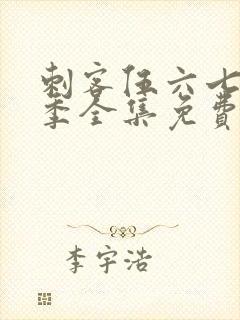 刺客伍六七
季全集免费
李宇浩